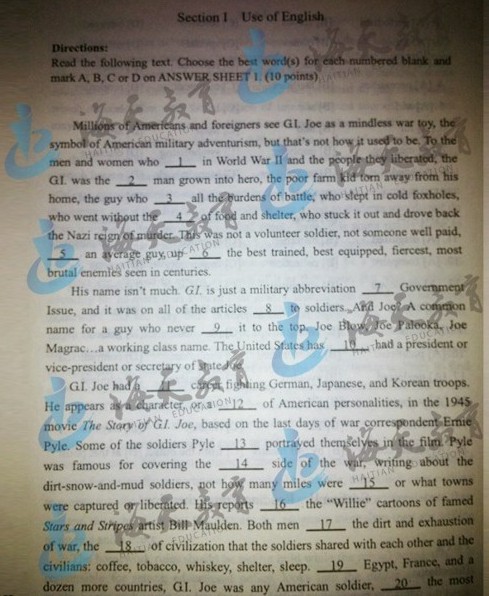 Section I Use of English
Directions:
Read the following text. Choose the best word(s) for each numbered blank and
mark A, B, C or D on ANSWER SHEET 1. (10 points)
Millions of Americans and foreigners see G.I. Joe as a mindless war toy, the
symbol of American military adventurism, but that's not how it used to be. To the
men and women who 1 in World War II and the people they liberated, the
G.I. was the 2 man grown into hero, the poor farm kid torn away from his
home, the guy who 3 all the burdens of battle, who slept in cold foxholes,
who went without the 4 of food and shelter, who stuck it out and drove back
the Nazi reign of murder. This was not a volunteer soldier, not someone well paid,
5 an average guy, up 6 the best trained, best equipped, fiercest, most
brutal enemies seen in centuries.
His name isn't much. G.I. is just a military abbreviation 7 Government
Issue, and it was on all of the articles 8 to soldiers. And Joe? A common
name for a guy who never 9 it to the top. Joe Blow, Joe Palooka, Joe
Magrac...a working class name. The United States has 10 had a president or
vice-president or secretary of state Joe.
G.I. Joe had a career fighting German, Japanese, and Korean troops.
He appears as a character, or a 12 of American personalities, in the 1945
movie The Story of G.I. Joe, based on the last days of war correspondent Ernie
Pyle. Some of the soldiers Pyle 13 portrayed themselves in the film. Pyle
was famous for covering the 14 side of the war, writing about the
dirt-snow-and-mud soldiers, not how many miles were 15 or what towns
were captured or liberated. His reports 16 the "Willie" cartoons of famed
Stars and Stripes artist Bill Maulden. Both men 17 the dirt and exhaustion
of war, the 18 of civilization that the soldiers shared with each other and the
civilians: coffee, tobacco, whiskey, shelter, sleep. 19 Egypt, France, and a
dozen more countries, G.I. Joe was any American soldier, 20 the most
海天教育
HAITIAN EDUCATION